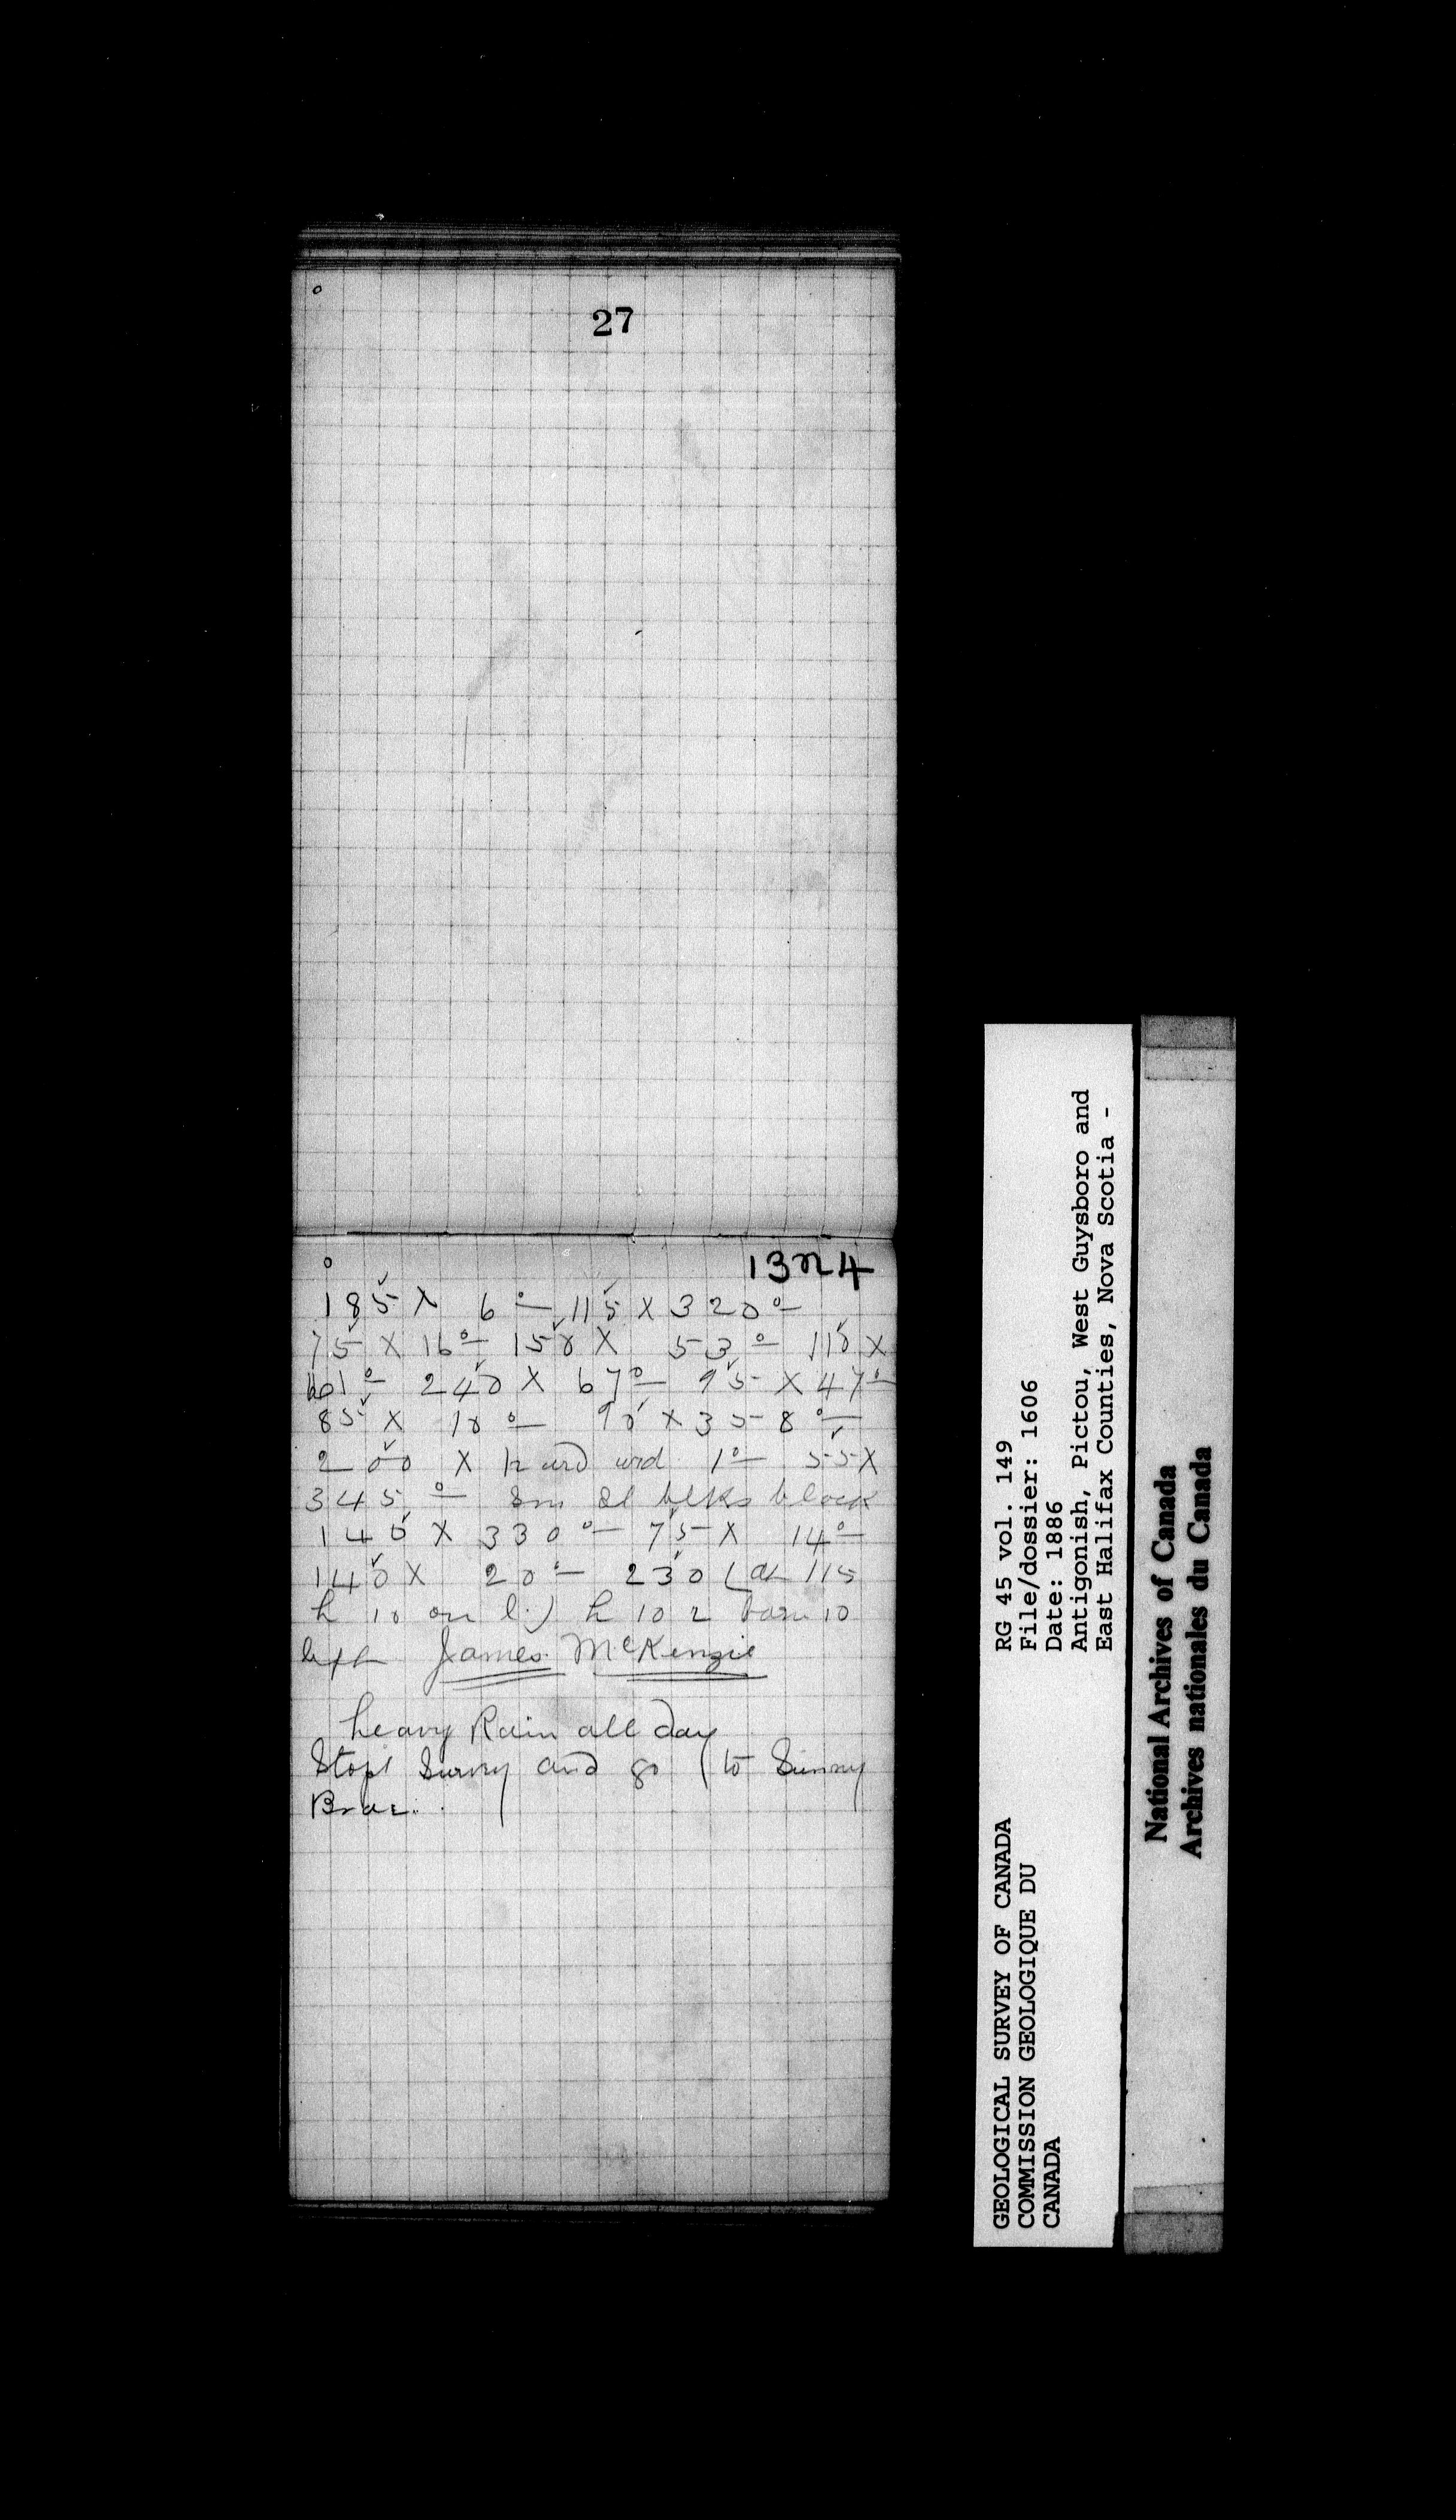 27
13n4
185 X 6° 115 X 320°
75 X 16° 150 X 53° 110 X
61° 240 X 67° 95 X 47°
85 X 10° 90 X 358°
200 X hard wd 1° 55 X
345° blks block
140 X 330° 75 X 14°
140 X 20° 230 (at 115
h 10 on l.) h 10 r barn 10
left James McKenzie
heavy Rain all day
Stop Survey and go to Sunny
Brae.
GEOLOGICAL SURVEY OF CANADA
COMMISSION GEOLOGIQUE DU
CANADA
RG 45 vol. 149
File/dossier: 1606
Date: 1886
Antigonish, Pictou, West Guysboro and
East Halifax Counties, Nova Scotia -
National Archives of Canada
Archives nationales du Canada